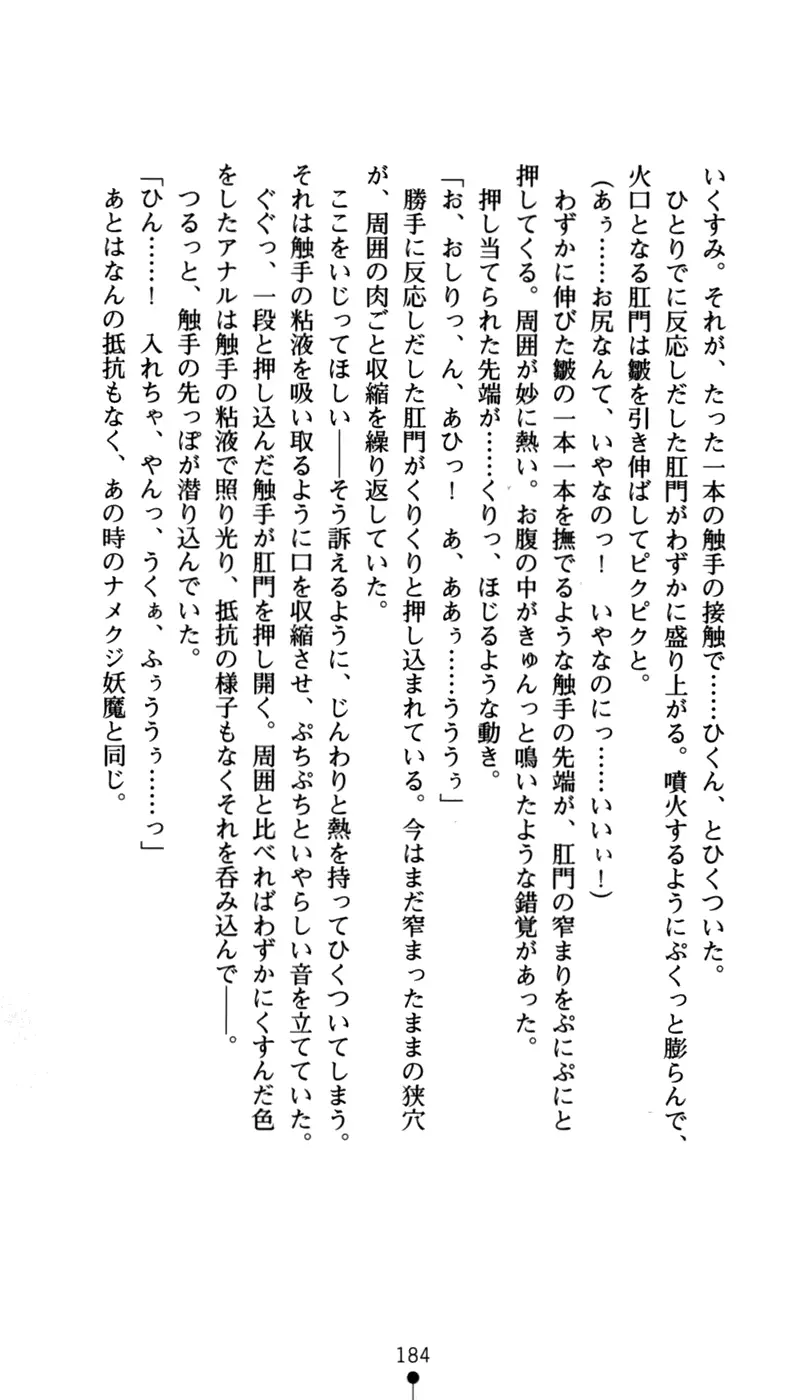 いくすみ。それが、たった一本の触手の接触で……ひくん、とひくついた。
ひとりでに反応しだした肛門がわずかに盛り上がる。噴火するようにぷくっと膨らんで、
火口となる肛門は皺を引き伸ばしてピクピクと。
(あぅ……お尻なんて、いやなのっ！　いやなのにっ……いいぃ！)
わずかに伸びた皺の一本一本を撫でるような触手の先端が、肛門の窄まりをぷにぷにと
押してくる。周囲が妙に熱い。お腹の中がきゅんっと鳴いたような錯覚があった。
押し当てられた先端が……くりっ、ほじるような動き。
「お、おしりっ、ん、あひっ！　あ、ああぅ……うううぅ」
勝手に反応しだした肛門がくりくりと押し込まれている。今はまだ窄まったままの狭穴
が、周囲の肉ごと収縮を繰り返していた。
ここをいじってほしい――そう訴えるように、じんわりと熱を持ってひくついてしまう。
それは触手の粘液を吸い取るように口を収縮させ、ぷちぷちといやらしい音を立てていた。
ぐぐっ、一段と押し込んだ触手が肛門を押し開く。周囲と比べればわずかにくすんだ色
をしたアナルは触手の粘液で照り光り、抵抗の様子もなくそれを呑み込んで――。
つるっと、触手の先っぽが潜り込んでいた。
「ひん……！　入れちゃ、やんっ、うくぁ、ふぅううぅ……っ」
あとはなんの抵抗もなく、あの時のナメクジ妖魔と同じ。
184